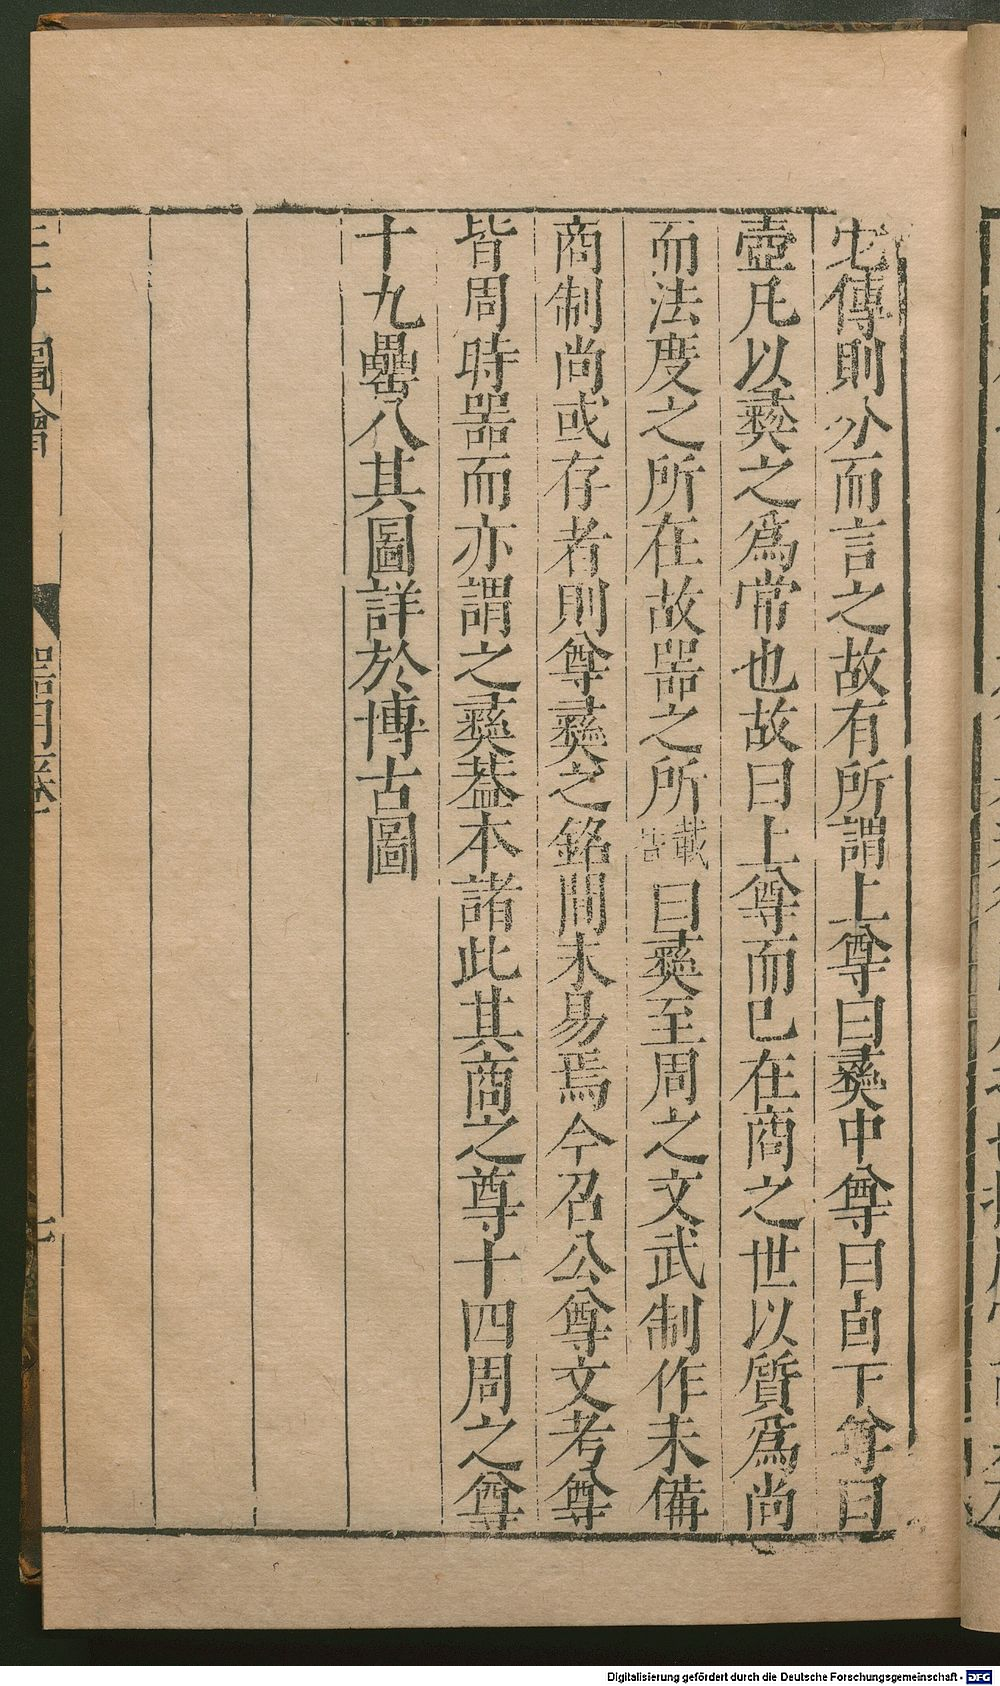 傳則分而言之故有所謂上尊曰彝中尊曰卣下尊曰
壺凡以彝之爲常也故曰上尊而已在商之世以質爲尚
而法度之所在故器之所載皆曰彝至周之文武制作未備
商制尚或存者則尊彝之銘間未易焉今召公尊文考尊
皆周時器而亦謂之彝葢本諸此其商之尊十四周之尊
十九罍八其圖詳於博古圖
三才圖會
器用一卷
七
Digitalisierung gefördert durch die Deutsche Forschungsgemeinschaft - DFG